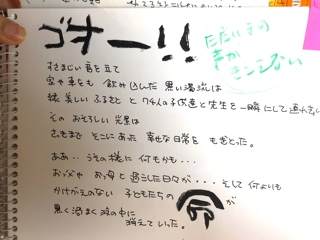 ゴオー!!
すさまじい音を立て
家や車をも 飲み込んだ 黒い濁流は
美しい ふるさと と 74人の子供達と先生を一瞬にして
その おそろしい 光景は
さっきまで そこにあった 幸せな日常を もぎとった。
ああ・・うその様に 何もかも・・・
お父や お母と過ごした日々が・・・そして 何よりも
かけがえのない 子どもたちの 命が
黒く渦まく 波の中に
消えていった。